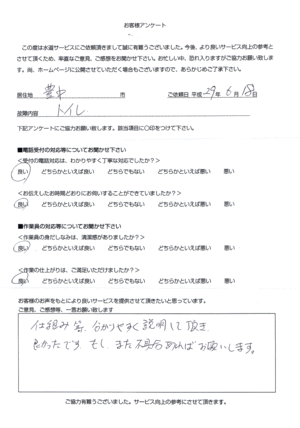 お客様アンケート
この度は水道サービスにご依頼頂きまして誠に有難うございました。今後、より良いサービス向上の参考と
させて頂くため、率直なご意見、ご感想をお聞かせ下さい。お忙しい中、恐れ入りますがご協力お願い致しま
す。尚、ホームページに公開させていただく場合もございますので、あらかじめご了承下さい。
居住地 豊中 市 ご依頼日 平成29年6月18日
故障内容 トイレ
下記アンケートにご協力お願い致します。該当項目に〇印をつけて下さい。
■電話受付の対応等についてお聞かせ下さい
<受付の電話対応は、わかりやすく丁寧な対応でしたか?>
良い どちらかといえば良い どちらでもない どちらかといえば悪い 悪い
<お伝えしたお時間どおりにお伺いすることができていましたか?>
良い どちらかといえば良い どちらでもない どちらかといえば悪い 悪い
■作業員の対応等についてお聞かせ下さい
<作業員の身だしなみは、清潔感がありましたか?>
良い どちらかといえば良い どちらでもない どちらかといえば悪い 悪い
<作業の仕上がりは、ご満足いただけましたか?>
良い どちらかといえば良い どちらでもない どちらかといえば悪い 悪い
お客様の声をもとにより良いサービスを提供させて頂きたいと思っています。
ご意見、ご感想等、一言お願い致します
仕組み等、分かりやすく説明して頂き、
良かったです。もし、また不具合あればお願いします。
ご協力有難うございました。サービス向上の参考にさせて頂きます。